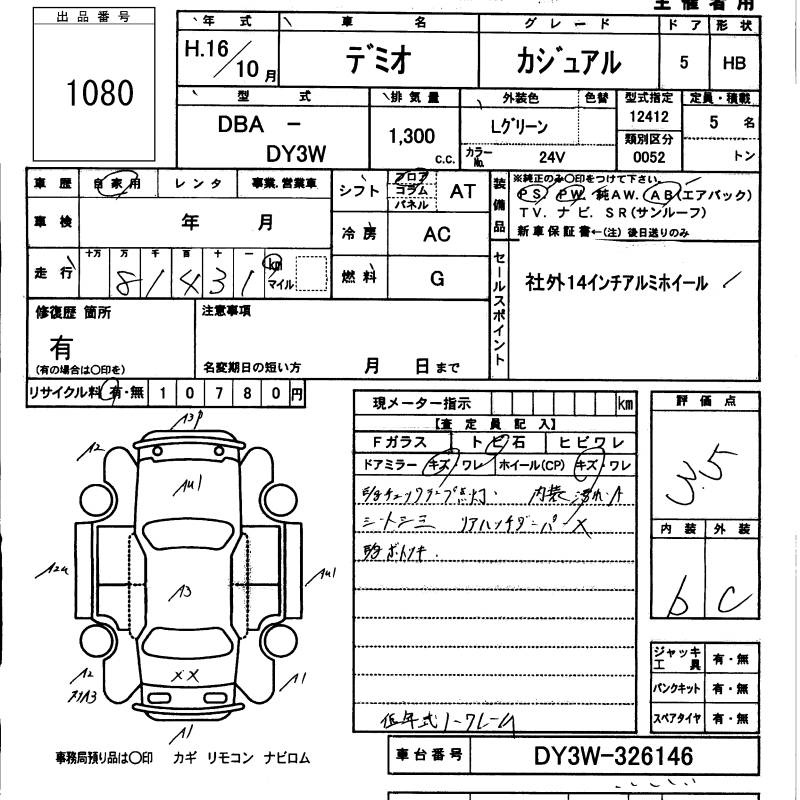 主催者用
出品番号
1080
年式 車名 グレード ドア 形状
H.16/10月 デミオ カジュアル 5 HB
型式 排気量 外装色 色替 型式指定 定員・積載
DBA - DY3W 1,300 c.c. Lグリーン 12412 5 名
カラーNo. 24V 類別区分 0052 トン
車歴 自家用 レンタ 事業.営業車
シフト フロア コラム パネル AT
装備品 ※純正のみ〇印をつけて下さい。
PS. PW. 純AW. AB(エアバック)
TV. ナビ. SR(サンルーフ)
新車保証書←(注) 後日送りのみ
車検 年 月
冷房 AC
走行 十万 万 千 百 十 一 km マイル
81431
燃料 G
セールスポイント 社外14インチアルミホイール
修復歴 箇所
有
(有の場合は〇印を)
注意事項
名変期日の短い方 月 日まで
リサイクル料 有・無 10780円
現メーター指示 km
【査定員記入】
Fガラス トビ石 ヒビワレ
ドアミラー キズ・ワレ ホイール(CP) キズ・ワレ
評価点
3.5
内装 外装
b C
ジャッキ工具 有・無
パンクキット 有・無
スペアタイヤ 有・無
13P
A2
AU1
A2a
A3
AU1
A2
XX
A1
A1
事務局預り品は〇印 カギ リモコン ナビロム
車台番号 DY3W-326146